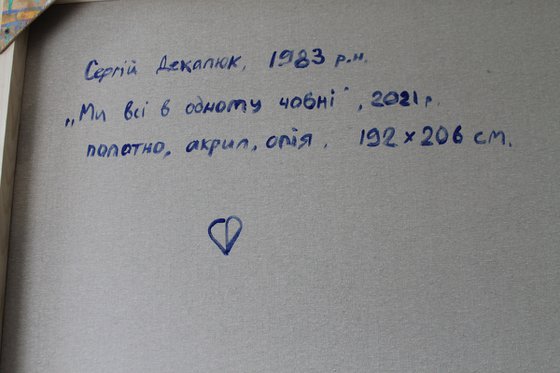 Сергій Декалюк, 1983 р.н.
„Ми всі в одному човні", 2021 р.
полотно, акрил, олія. 192 х 206 см.